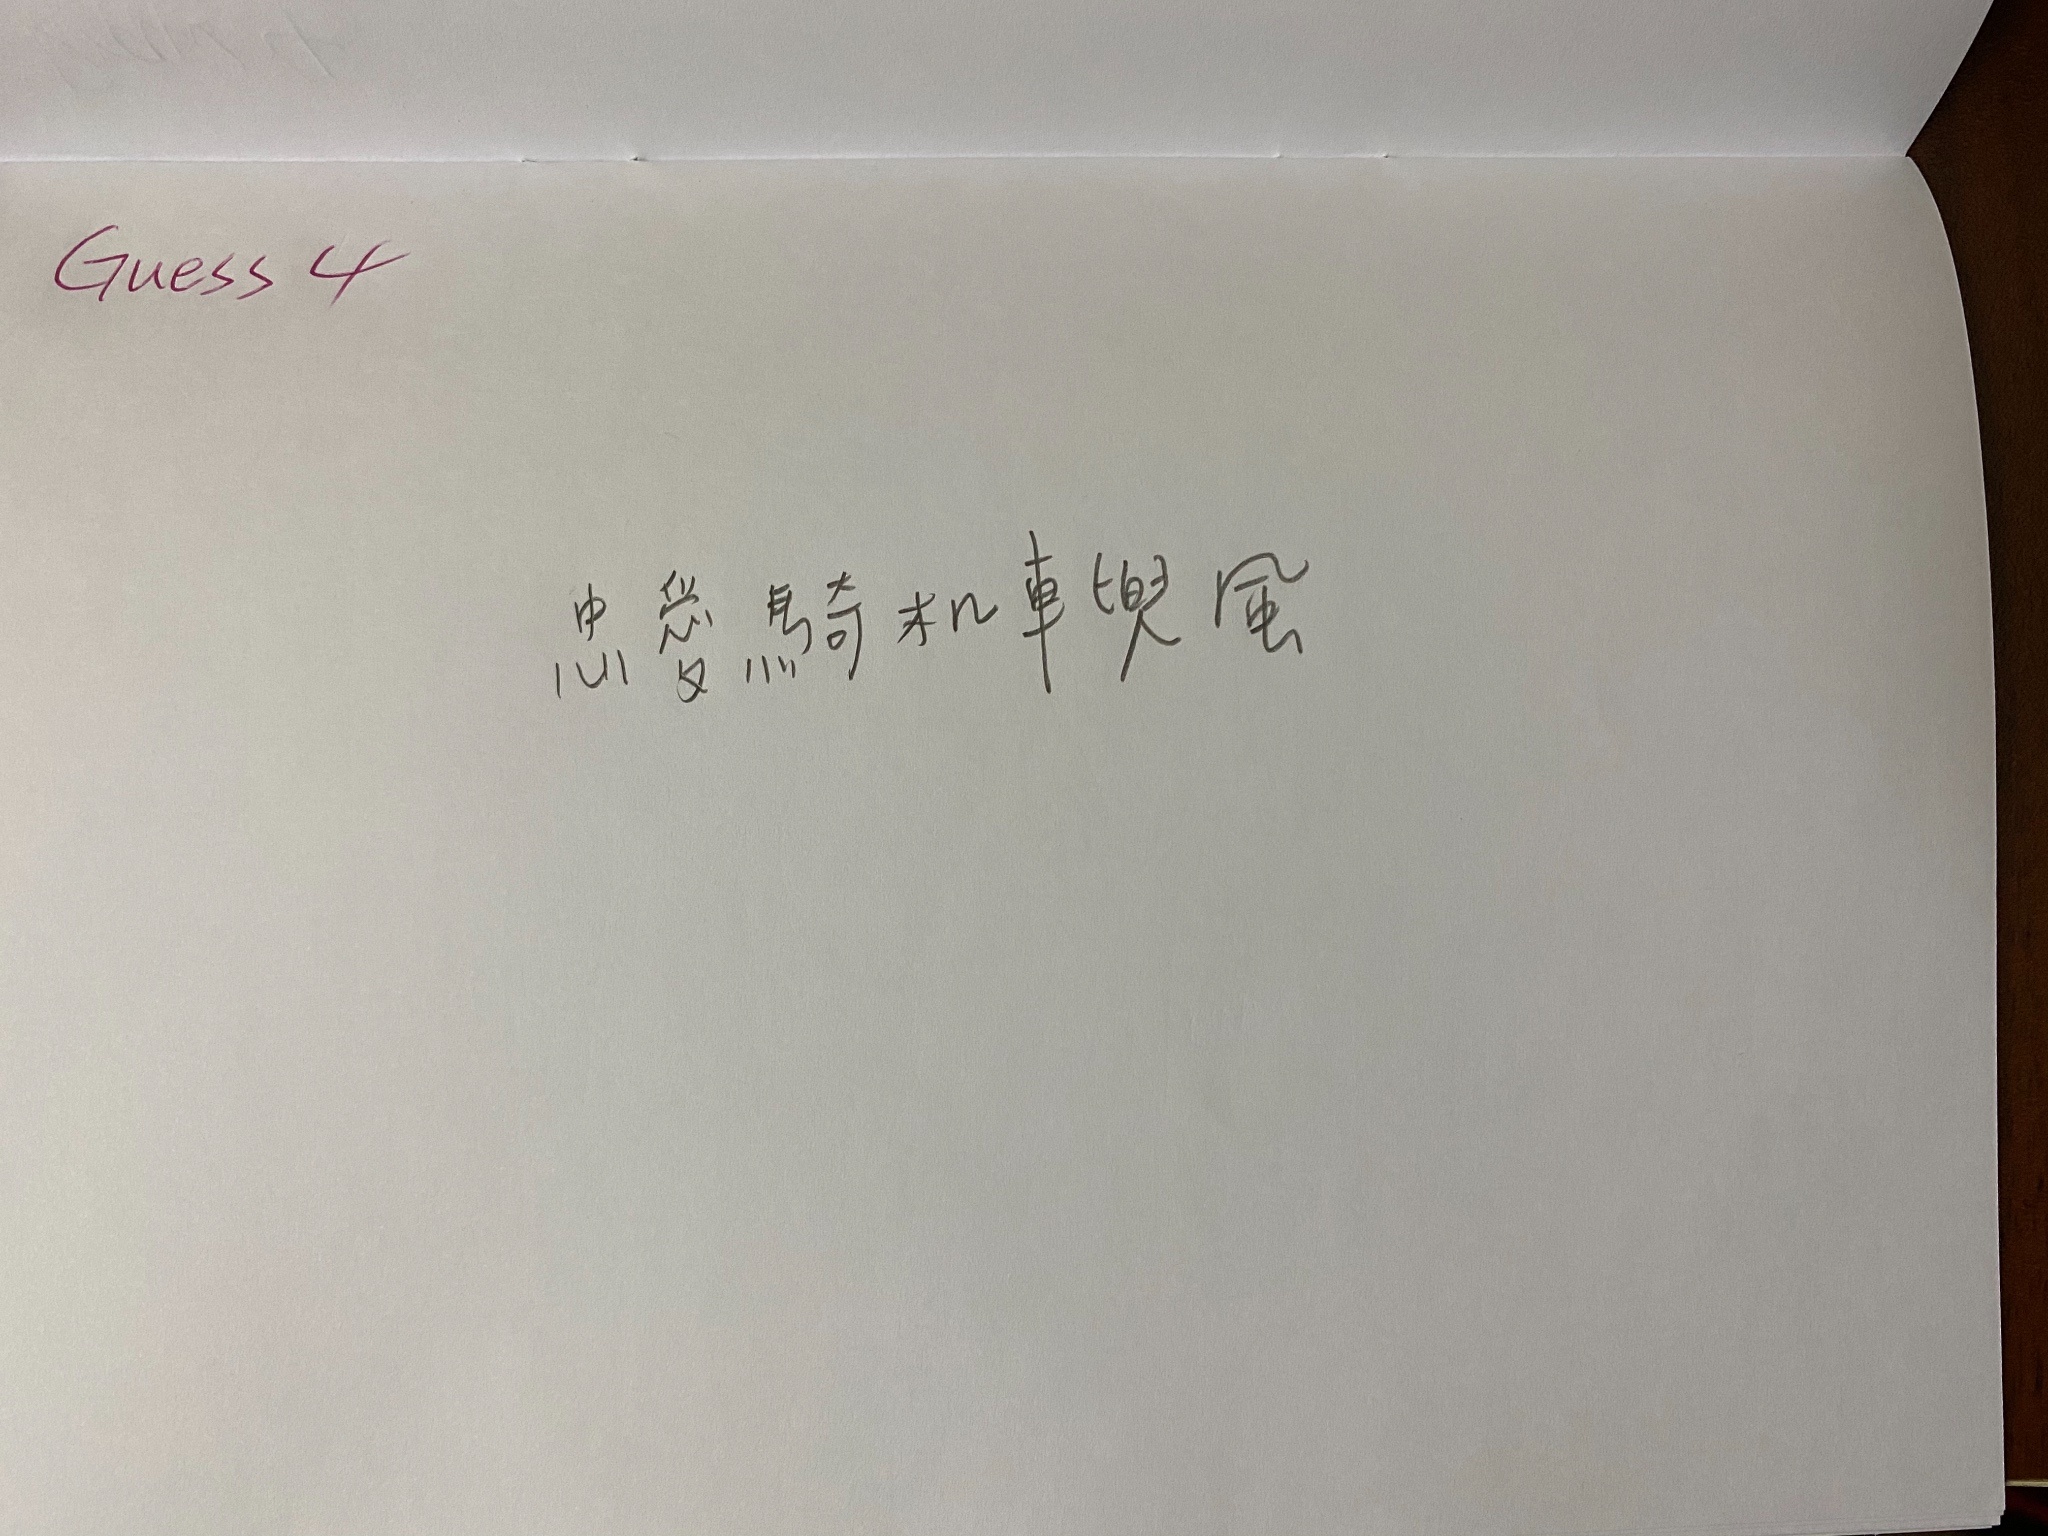 Guess 4
忠愛騎机車兜風